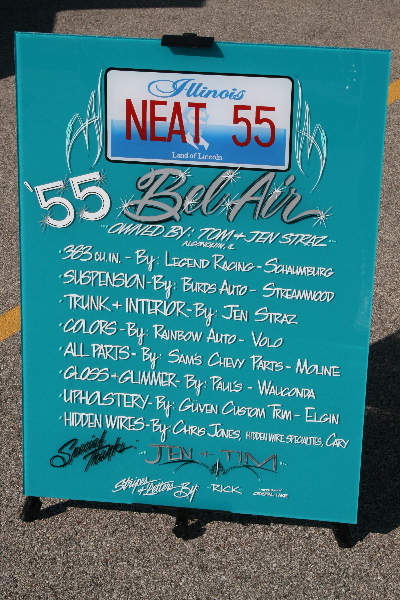 Illinois
NEAT 55
Land of Lincoln
'55 Bel Air
OWNED BY: TOM + JEN STRAZ
ALGONQUIN, IL
· 383 CU.IN. - BY: LEGEND RACING - SCHAUMBURG
· SUSPENSION - BY: BURDS AUTO - STREAMWOOD
· TRUNK + INTERIOR - BY: JEN STRAZ
· COLORS - BY: RAINBOW AUTO - VOLO
· ALL PARTS - BY: SAM'S CHEVY PARTS - MOLINE
· GLOSS + GLIMMER - BY: PAUL'S - WAUCONDA
· UPHOLSTERY - BY: GUVEN CUSTOM TRIM - ELGIN
· HIDDEN WIRES - BY: CHRIS JONES, HIDDEN WIRE SPECIALTIES, CARY
Special Thanks JEN + TIM
Stripes + Letters By: RICK
CRYSTAL LAKE